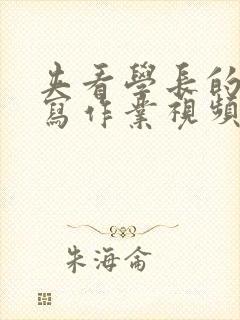 失看學長的
寫作業視頻
朱海侖